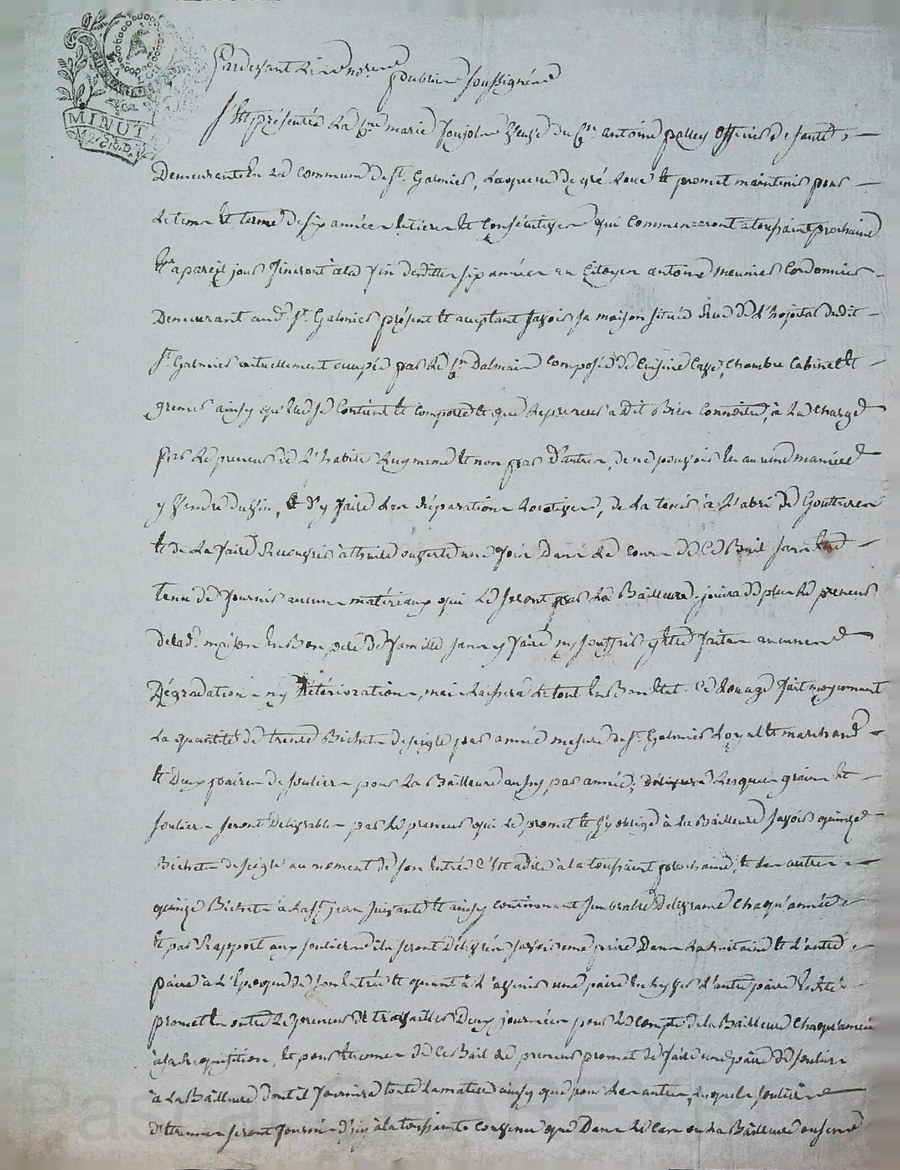 MINUT
Pardevant le notaire public soussigné
S'est présentée la C.ne marie Joujole veuve du C.en antoine palley officier de santé
Demeurante en la commune de S.t Galmier, laquelle de gré loue et promet maintenir pour
le tems et terme de six années entieres et consécutives qui commenceront a toussaint prochaine
et a pareil jour finiront a la fin desdittes six années au Citoyen antoine meunier Cordonnier
Demeurant aud.t S.t Galmier présent et acceptant savoir sa maison située rue de l'hopital dudit
S.t Galmier actuellement occupée par le C.en Dalmain composée de Cuisine Cave, Chambre Cabinet et
grenier ainsy qu'elle se Contient et Comporte et que le preneur a Dit Bien Connoitre, à la Charge
par le preneur de l'habiter luy meme et non par D'autres, de ne pouvoir en aucune maniere
y vendre du vin, et d'y faire les réparations locatives, de la tenir à l'abri de Gouttieres
et de la faire à thuile ouverte une fois Dans le cours de Ce Bail sans être
tenu de fournir aucuns matériaux qui le seront par la Bailleure. jouira de plus le preneur
de lad. maison en Bon pere de famille sans y faire ny souffrir y être faites aucunes
Dégradations ny Détériorations, mais laissera le tout en Bon état. Ce louage fait moyennant
la quantité de trente Bichets de seigle par année mesure de S.t Galmier loyal et marchand
et Deux paires de soulier pour la Bailleure aussy par année, lesquels grains et
souliers seront Delivrables par le preneur qui le promet et s'y oblige à la Bailleure savoir quinze
Bichets de seigle au moment de son entrée C'est a dire à la toussaint prochaine, et les autres
quinze Bichets à la S.t jean suivante et ainsy continuant semblable Délivrance Chaqu'année
et par Rapport aux souliers ils seront Délivrés savoir une paire Dans la huitaine et l'autre
paire à l'Epoque de son entrée et quant à l'avenir une paire en hyver l'autre paire en Eté
promet en outre le preneur de travailler Deux journées pour le compte de la Bailleure Chaqu'année
à sa requisition, et pour étrennes de Ce Bail le preneur promet de faire une paire de souliers
à la Bailleure dont il fournira toute la matiere ainsy que pour les autres, lesquels souliers
d'étrennes seront fournis d'icy à la toussaint. Convenu que Dans le Cas ou la Bailleure